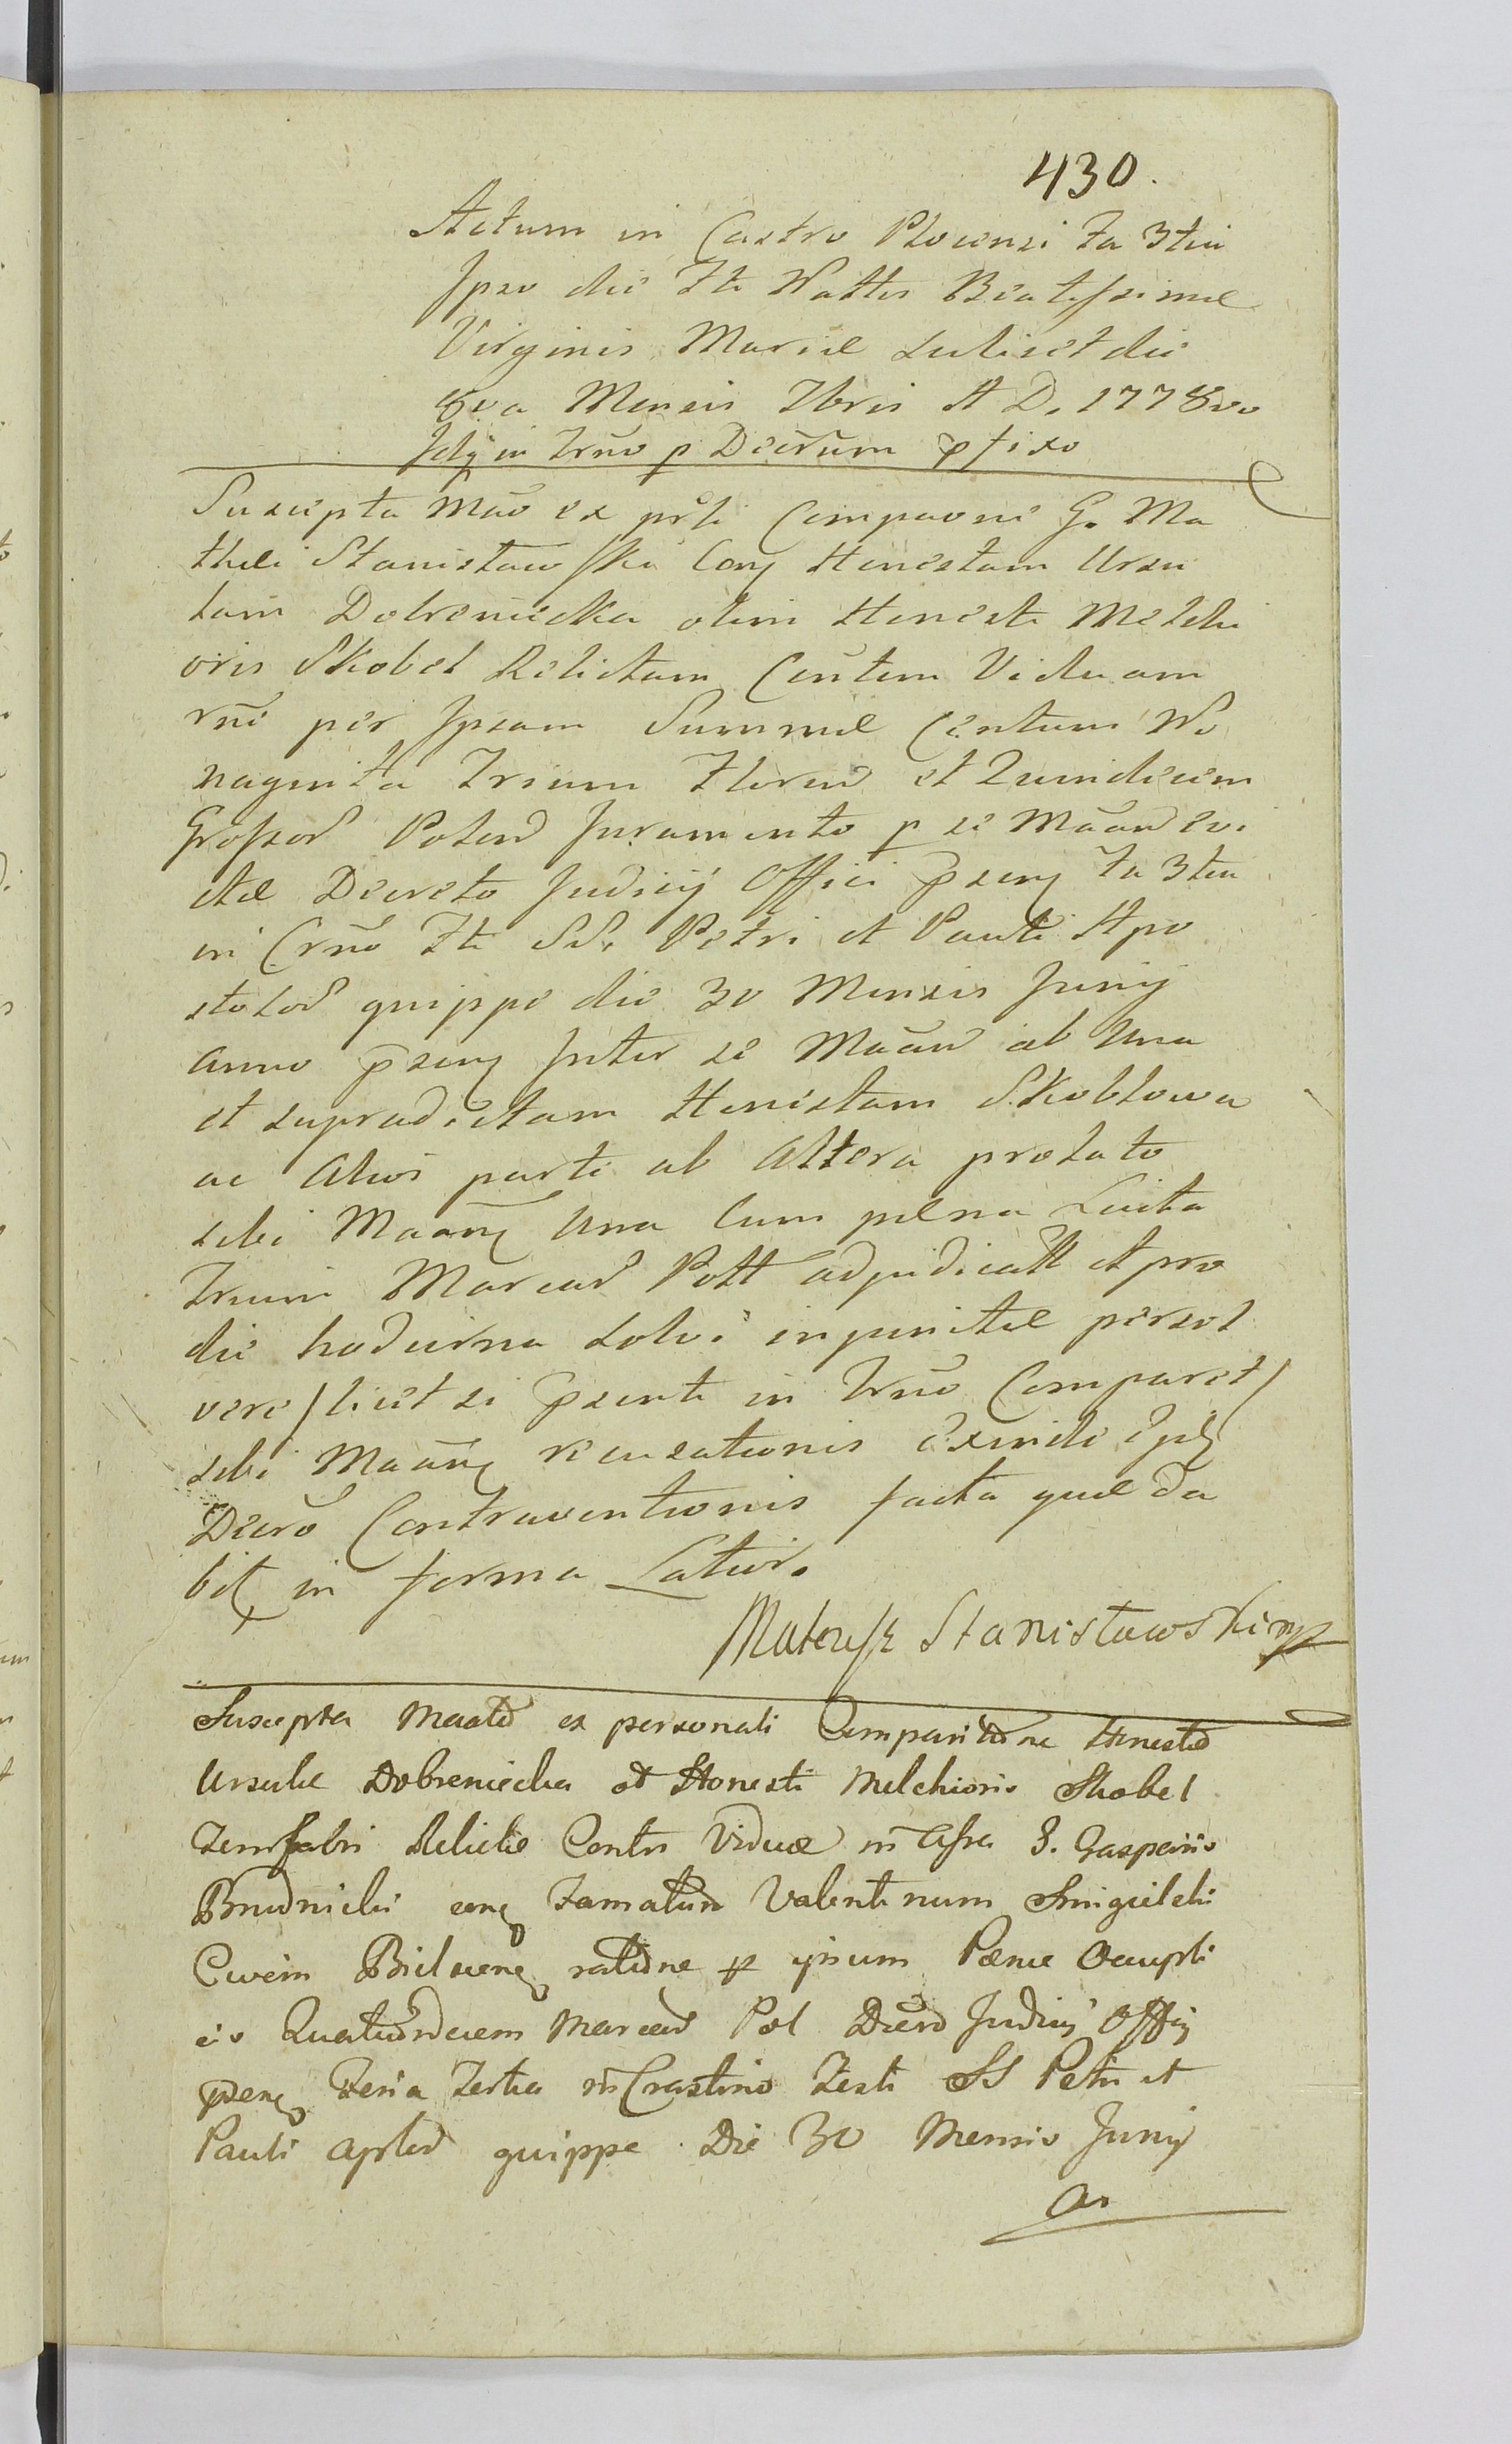 430.
Actum in Castro Plocensi fa 3tia
Ipso die fti Nattis Beatissimæ
Virginis Mariæ scilicet die
8va Mensis 7bris A D. 1778vo
Idq in Trno p Decrum pfixo
Suscepta Mao ex psli Compaone G. Ma
thæi Stanisławski Conq Honestam Ursu
lam Dobreniecka olim Honesti Melchi
oris Skobel Relictam Contem Viduam
rne per Ipsam Summæ Centum No
naginta Trium Floren et Quindecim
Grossor Polon Juramento p se Maan evi
ctæ Decreto Judicij Offici psenq fa 3tia
in Crno fti SS. Petri et Pauli Apo
stolor quippe die 30 Mensis Junij
anno psenq Inter se Maan ab Una
et supradictam Honestam Skoblowa
ac Alios parte ab Altera prolato
sibi Maanq Una Cum pæna Luita
Trium Marcar Poll adjudicatt et pro
die hodierna solvi injunctæ persol
vere / licet se psente in Trno Comparet /
sibi Maanq recusationis Exinde Ejdq
Decro Contraventionis facta quæ da
bit in forma Latior.
Mateusz Stanisławski mp
Suscepta Maate ex personali Comparitione Honestæ
Ursulæ Dobreniecka ol Honesti Melchioris Skobel
Relictæ Contis Viduæ in Assa G. Gasparis
Brudnicki conq Famatum Valentinum Smigielski
Civem Bielscenq ratione p ipsum Pænæ
Quatuordecem Marcar Pol Decro Judicij Offij
psenq Feria Tertia in Crastino Festi SS Petri et
Pauli Aplor quippe Die 30 Mensis Junij
An